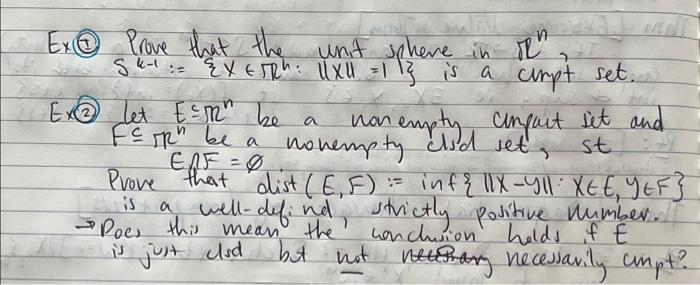 Ex ① Prove that the unit sphere in ℝⁿ,
S^{k-1} := {X ∈ ℝⁿ: ||X|| = 1} is a cmpt set.
Ex ② let E ⊆ ℝⁿ be a nonempty cmpact set and
F ⊆ ℝⁿ be a nonempty clsd set, st
E ∩ F = ∅
Prove that dist(E, F) := inf{||X-y||: X∈E, y∈F}
is a well-defind, strictly positive number.
→ Does this mean the conclusion holds if E
is just clsd but not necessarily cmpt?